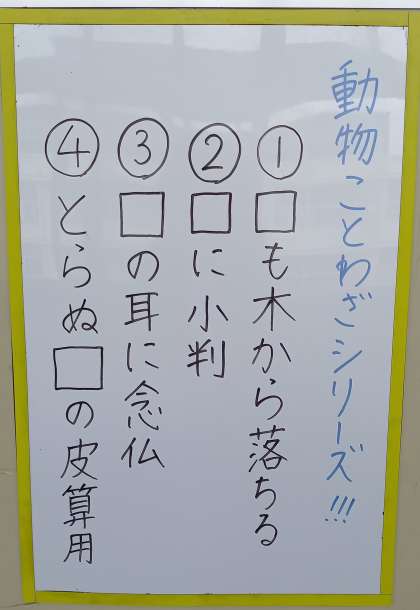 動物ことわざシリーズ!!!
①□も木から落ちる
②□に小判
③□の耳に念仏
④とらぬ□の皮算用